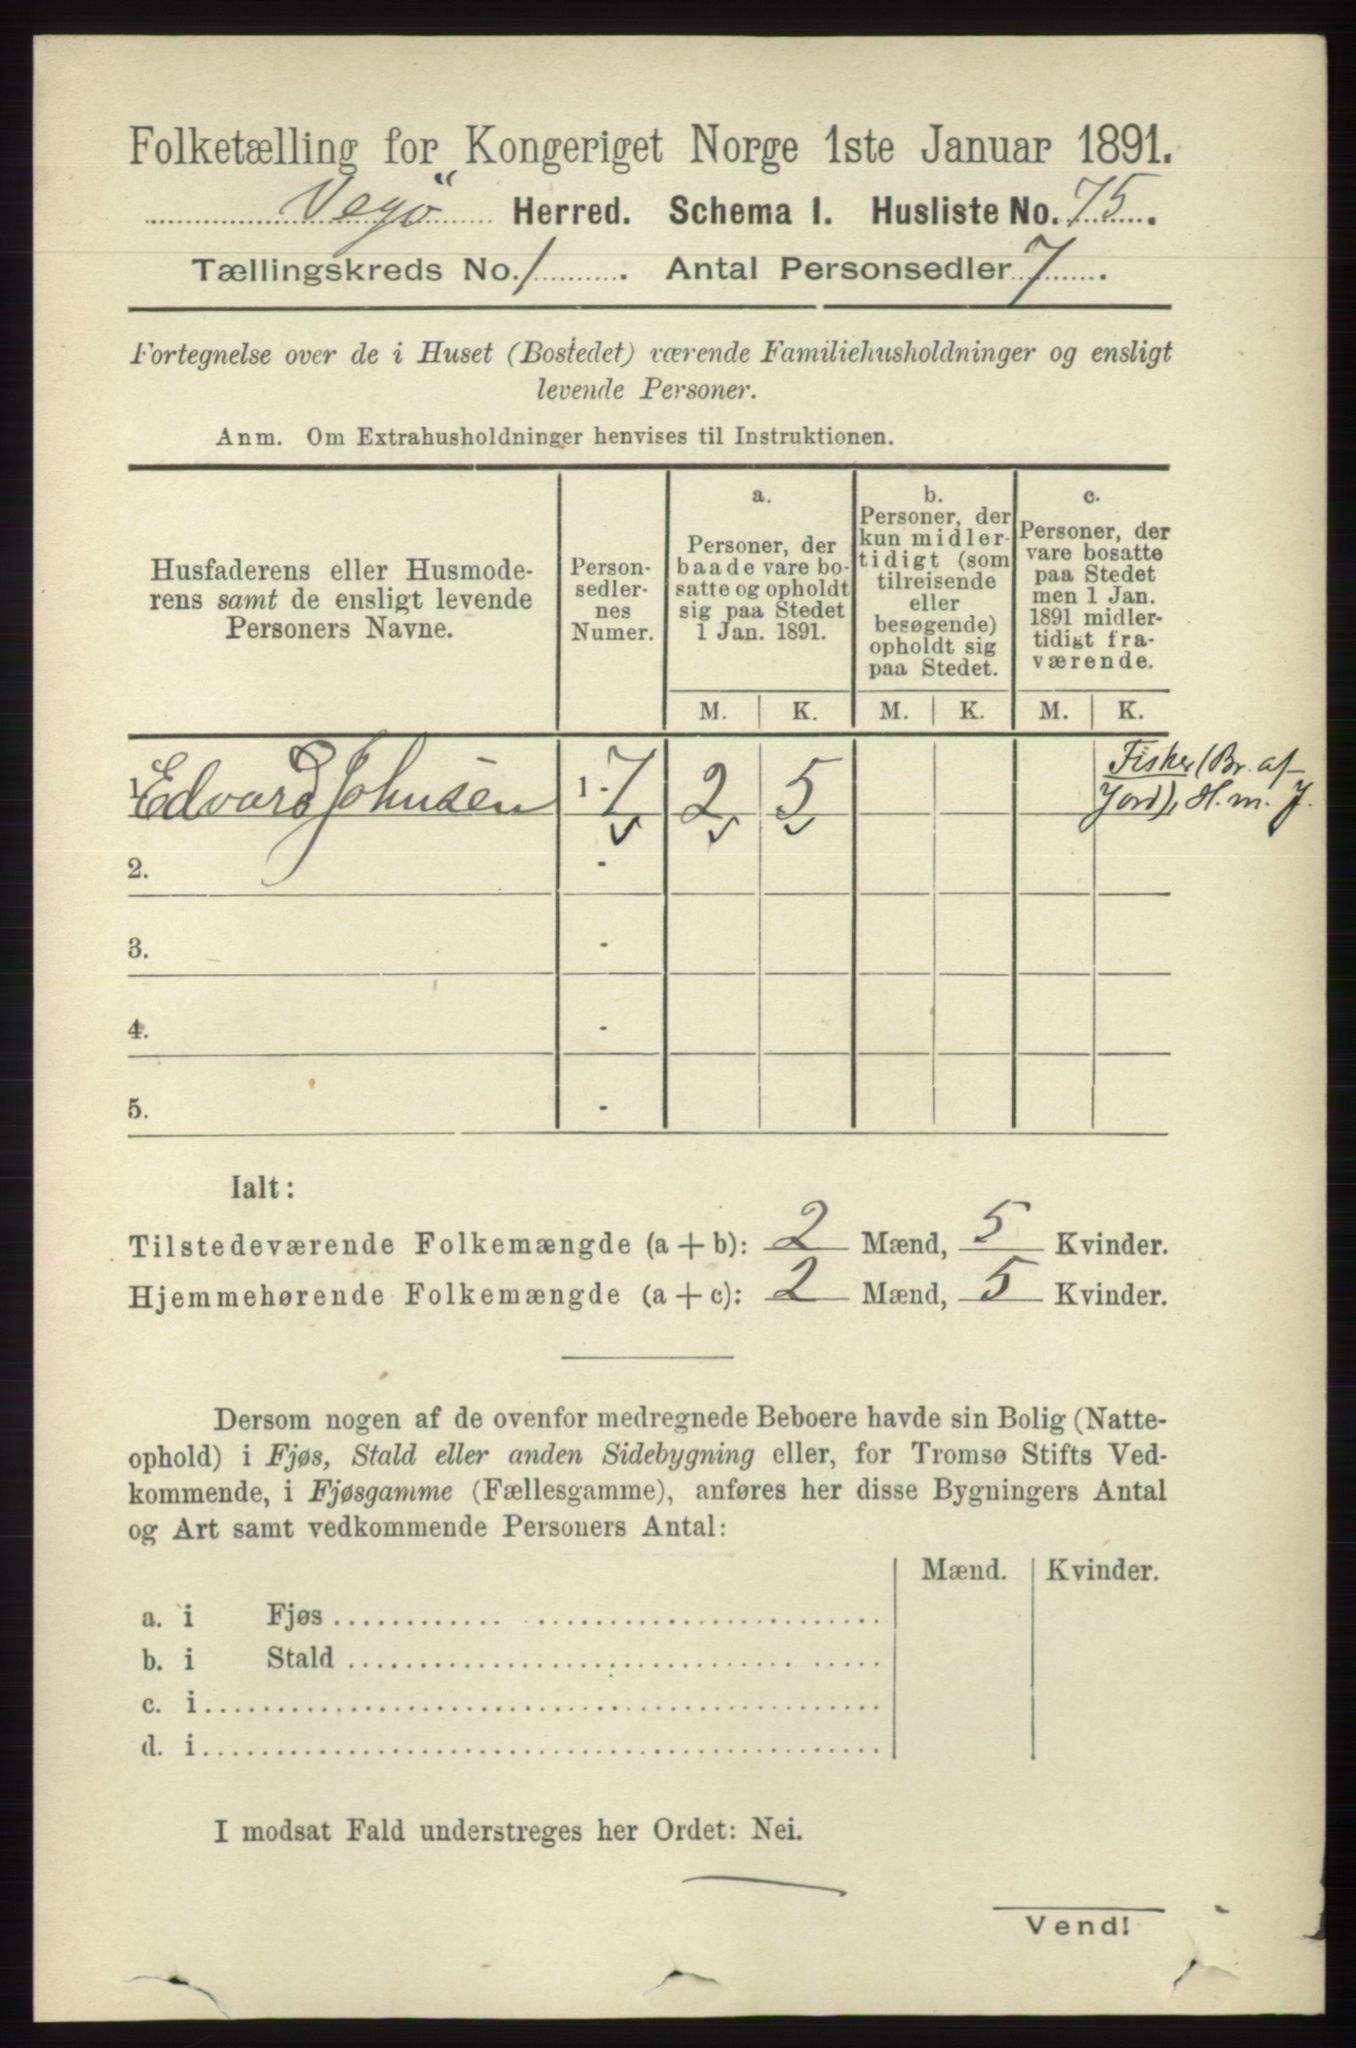 Folketælling for Kongeriget Norge 1ste Januar 1891.
Vegö Herred. Schema I. Husliste No. 75.
Tællingskreds No. 1. Antal Personsedler 7.
Fortegnelse over de i Huset (Bostedet) værende Familiehusholdninger og ensligt
levende Personer.
Anm. Om Extrahusholdninger henvises til Instruktionen.
Husfaderens eller Husmode-
rens samt de ensligt levende
Personers Navne.
Person-
sedler-
nes
Numer.
a.
Personer, der
baade vare bo-
satte og opholdt
sig paa Stedet
1 Jan. 1891.
b.
Personer, der
kun midler-
tidigt (som
tilreisende
eller
besøgende)
opholdt sig
paa Stedet.
c.
Personer, der
vare bosatte
paa Stedet
men 1 Jan.
1891 midler-
tidigt fra-
værende.
M. K. M. K. M. K.
1. Edvard Johnsen 1-7 2 5 Fisker (Br. af
Jord), H. m. J.
2. -
3. -
4. -
5. -
Ialt:
Tilstedeværende Folkemængde (a + b): 2 Mænd, 5 Kvinder.
Hjemmehørende Folkemængde (a + c): 2 Mænd, 5 Kvinder.
Dersom nogen af de ovenfor medregnede Beboere havde sin Bolig (Natte-
ophold) i Fjøs, Stald eller anden Sidebygning eller, for Tromsø Stifts Ved-
kommende, i Fjøsgamme (Fællesgamme), anføres her disse Bygningers Antal
og Art samt vedkommende Personers Antal:
Mænd. Kvinder.
a. i Fjøs
b. i Stald
c. i
d. i
I modsat Fald understreges her Ordet: Nei.
Vend!